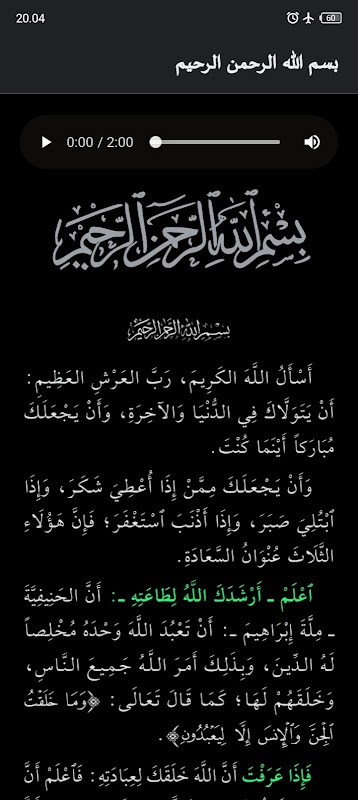 20.04
60
بسم الله الرحمن الرحيم
0:00 / 2:00
بِسْمِ اللَّهِ الرَّحْمَنِ الرَّحِيمِ
بِسْمِ اللَّهِ الرَّحْمَنِ الرَّحِيمِ
أَسْأَلُ اللَّهَ الكَرِيمَ، رَبَّ العَرْشِ العَظِيمِ:
أَنْ يَتَوَلَّاكَ فِي الدُّنْيَا وَالآخِرَةِ، وَأَنْ يَجْعَلَكَ
مُبَارَكاً أَيْنَمَا كُنْتَ.
وَأَنْ يَجْعَلَكَ مِمَّنْ إِذَا أُعْطِيَ شَكَرَ، وَإِذَا
ٱبْتُلِيَ صَبَرَ، وَإِذَا أَذْنَبَ ٱسْتَغْفَرَ؛ فَإِنَّ هَؤُلَاءِ
الثَّلَاثَ عُنْوَانُ السَّعَادَةِ.
ٱعْلَمْ ـ أَرْشَدَكَ اللَّهُ لِطَاعَتِهِ ـ: أَنَّ الحَنِيفِيَّةَ
ـ مِلَّةَ إِبْرَاهِيمَ ـ: أَنْ تَعْبُدَ اللَّهَ وَحْدَهُ مُخْلِصاً
لَهُ الدِّينَ، وَبِذَلِكَ أَمَرَ اللَّهُ جَمِيعَ النَّاسِ،
وَخَلَقَهُمْ لَهَا؛ كَمَا قَالَ تَعَالَى: ﴿وَمَا خَلَقْتُ
ٱلْجِنَّ وَٱلْإِنسَ إِلَّا لِيَعْبُدُونِ﴾.
فَإِذَا عَرَفْتَ أَنَّ اللَّهَ خَلَقَكَ لِعِبَادَتِهِ: فَٱعْلَمْ أَنَّ